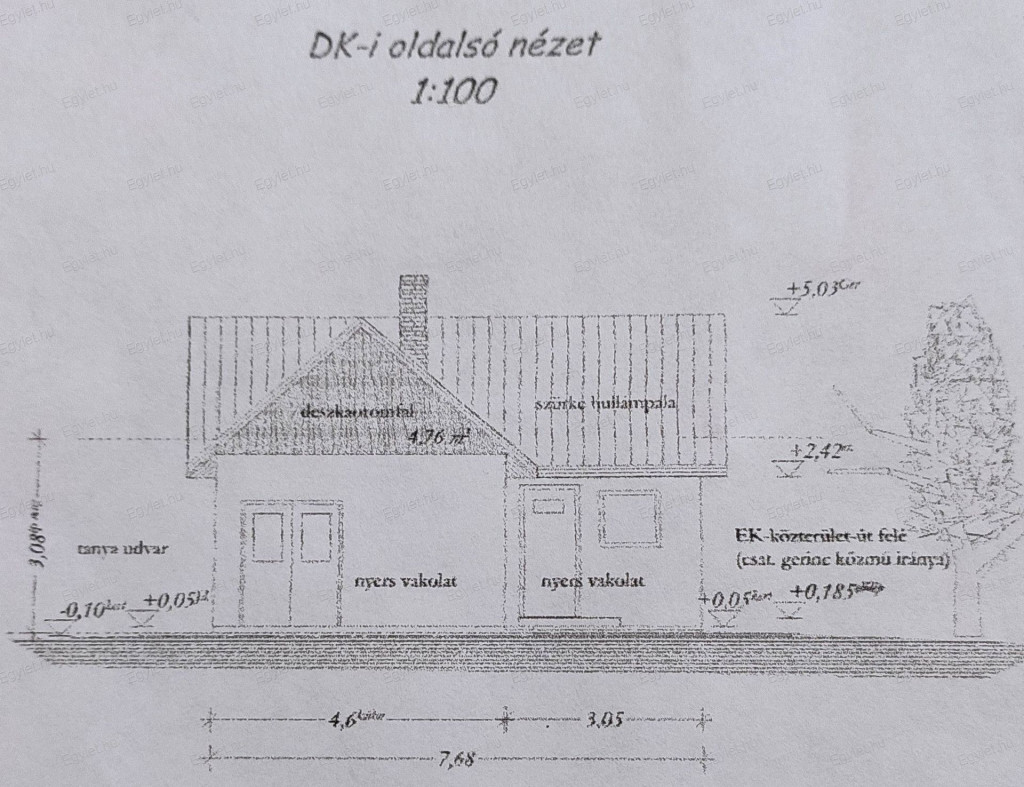 DK-i oldalsó nézet
1:100
+5,03
deszkaoromfal
4,76 m²
szürke hullámpala
+2,42
3,08
tanya udvar
EK-közterület-út felé
(csat. gerinc közmű iránya)
nyers vakolat
nyers vakolat
-0,10
+0,05
+0,05
+0,185
4,6
3,05
7,68